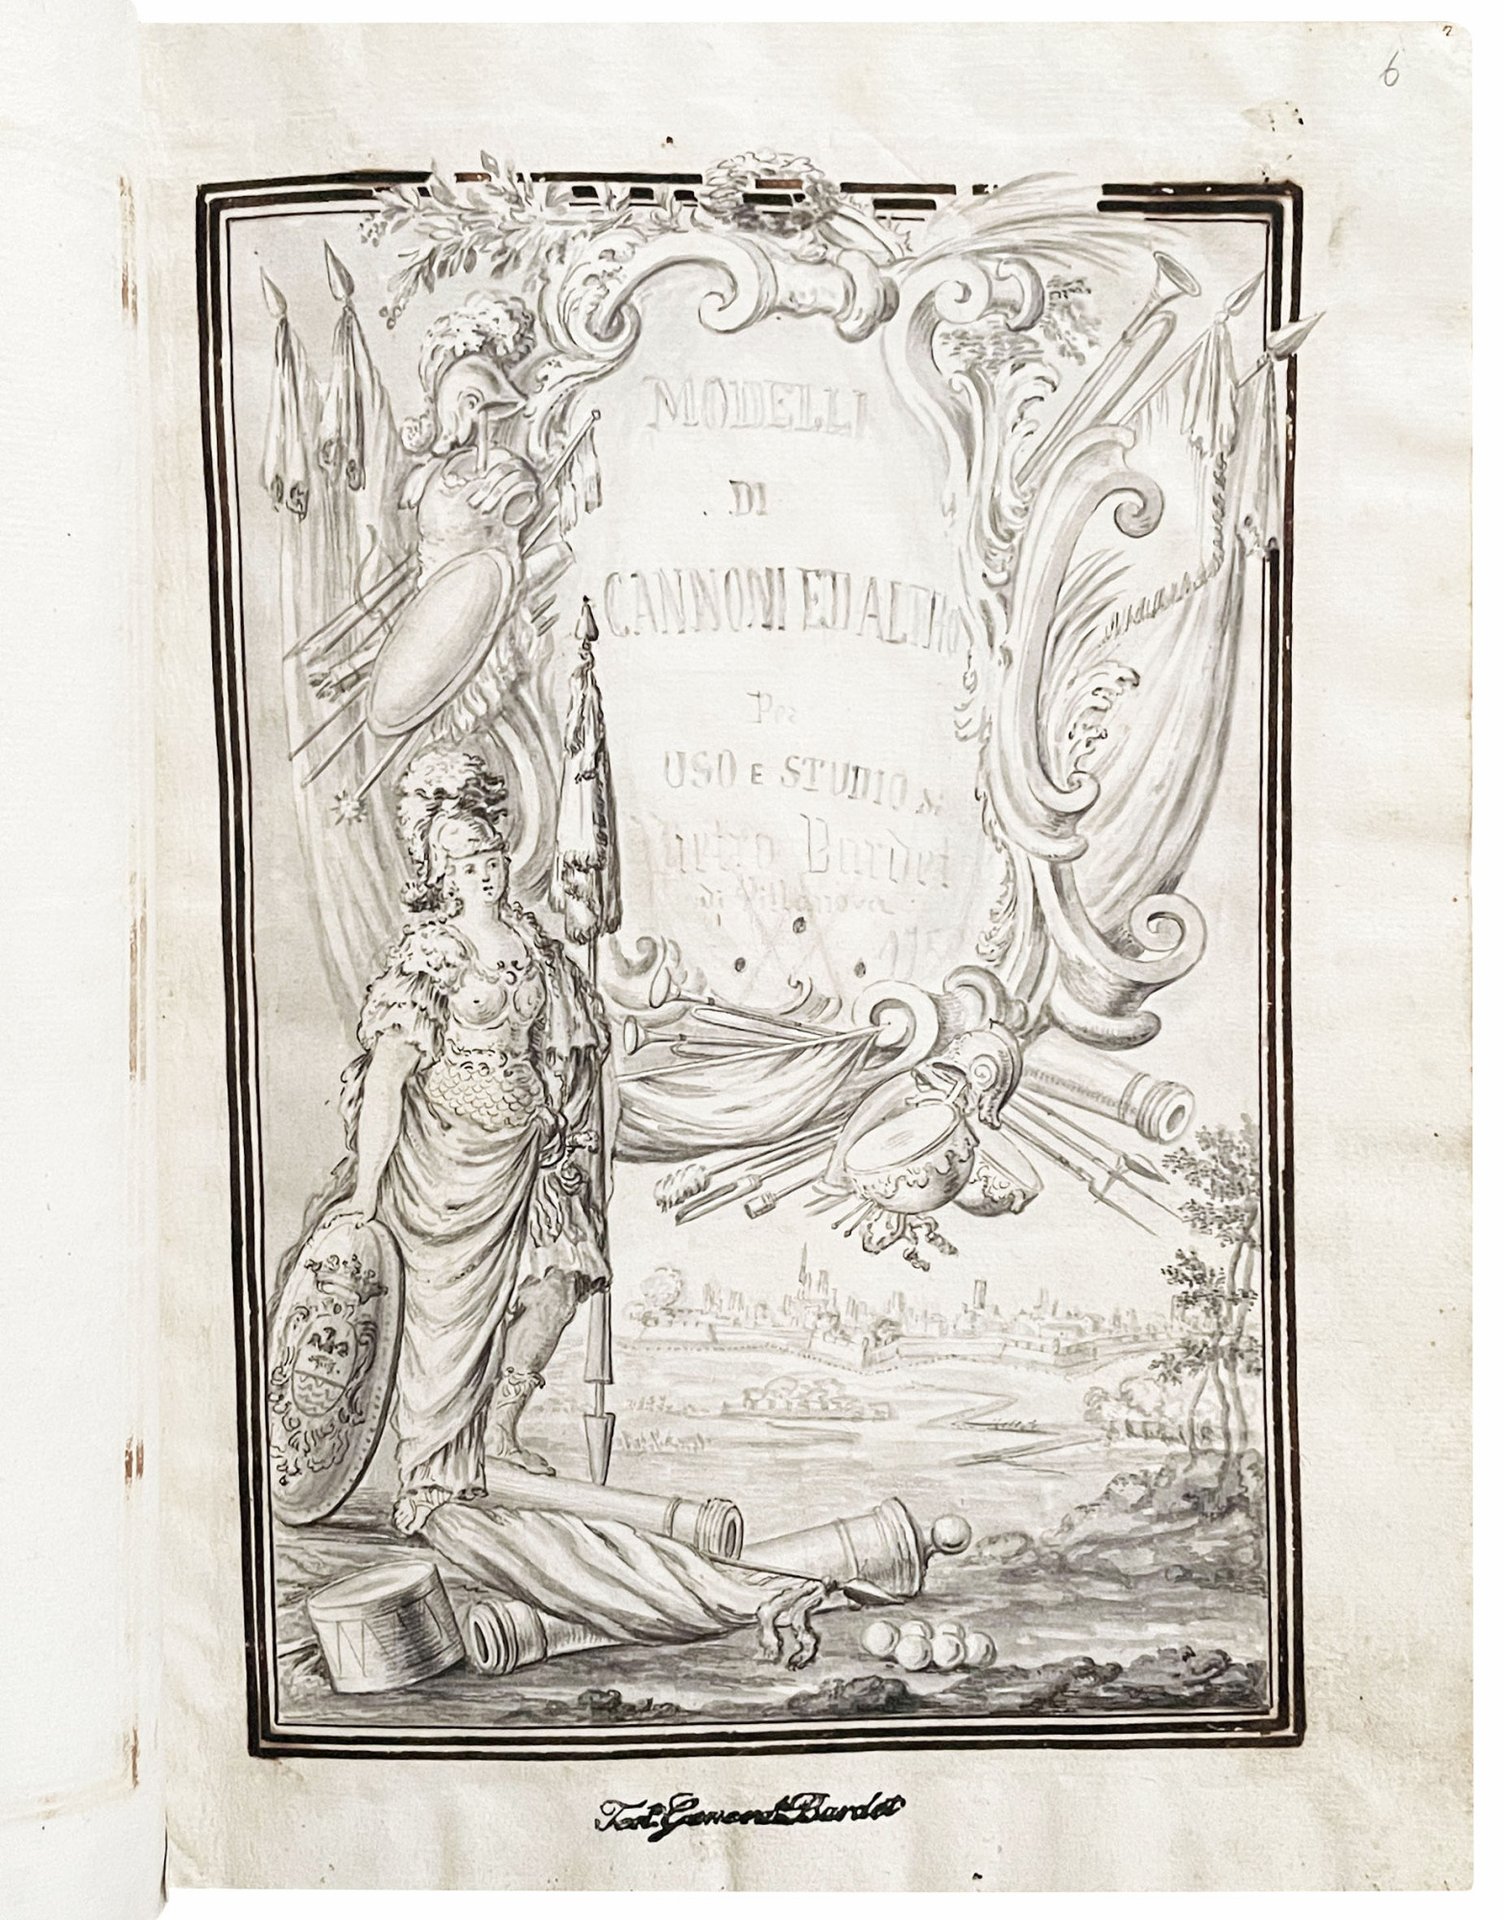 6
MODELLI
DI
CANNONI ED ALTRO
Per
USO E STUDIO di
Pietro Bardet
di Villanova
Ten. General Bardet